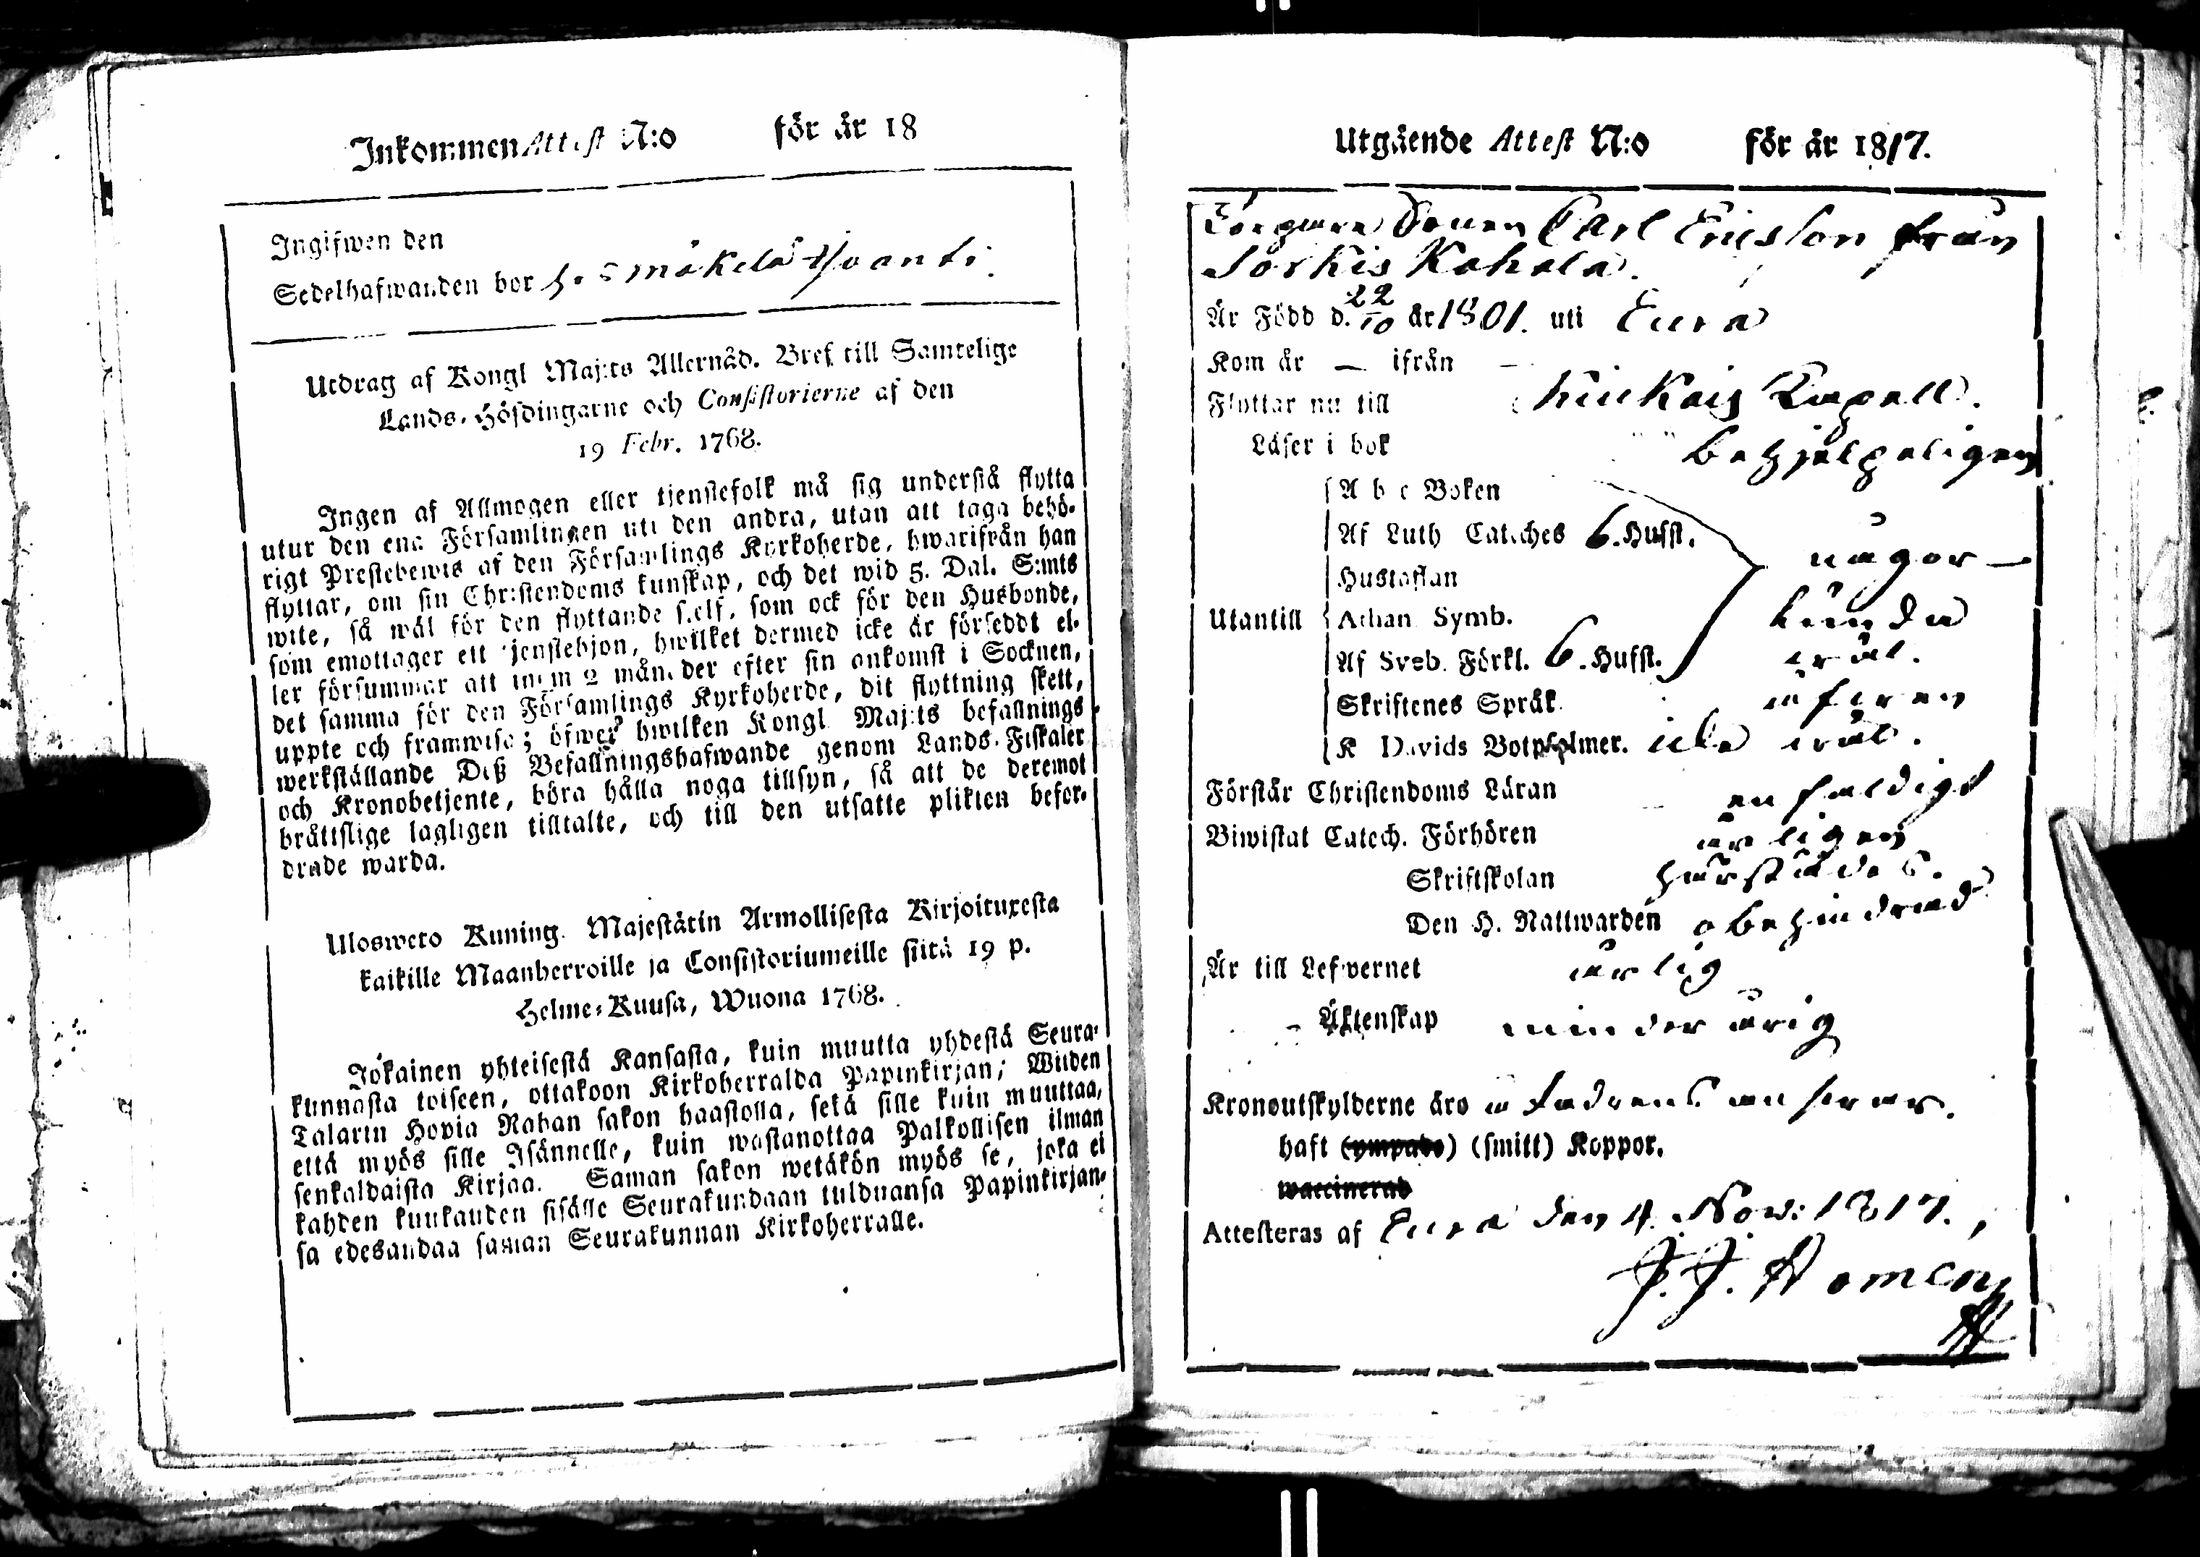 Inkommen Attest N:o för år 18
Ingifwen den
Sedelhafwanden bor Mäkelä
Utdrag af Kongl Maj:ts Allernåd. Bref till Samtelige
Lands-Höfdingarne och Consistorierne af den
19 Febr. 1768.
Ingen af Allmogen eller tjenstefolk må sig understå flytta
utur den ena Församlingen uti den andra, utan att taga behö-
rigt Prestebewis af den Församlings Kyrkoherde, hwarifrån han
flyttar, om sin Christendoms kunskap, och det wid 5. Dal. S:mts
wite, så wäl för den flyttande sielf, som ock för den Husbonde,
som emottager ett tjenstehjon, hwilket dermed icke är försedt el-
ler försummar att inom 2 månader efter sin ankomst i Socknen,
det samma för den Församlings Kyrkoherde, dit flyttning skett,
uppte och framwisa; öfwer hwilken Kongl Maj:ts befallnings
werkställande Deß Befallningshafwande genom Lands-Fiskaler
och Kronobetjente, böra hålla noga tillsyn, så att de deremot
bråttslige lagligen tilltalte, och till den utsatte plikten befor-
drade warda.
Ulosweto Kuning. Majestätin Armollisesta Kirjoituxesta
kaikille Maanherroille ja Consistoriumeille siitä 19 p.
Helme-Kuusa, Wuona 1768.
Jokainen yhteisestä Kansasta, kuin muutta yhdestä Seura-
kunnasta toiseen, ottakoon Kirkoherralda Papinkirjan; Wiiden
Talarin Hopia Rahan sakon haastolla, sekä sille kuin muuttaa,
että myös sille Isännelle, kuin wastanottaa Palkollisen ilman
senkaldaista Kirjaa. Saman sakon wetäkön myös se, joka ei
kahden kuukauden sisälle Seurakundaan tulduansa Papinkirjan-
sa edesandaa saman Seurakunnan Kirkoherralle.
Utgående Attest N:o för år 1817.
Carl Ericsson från
Sorkis Kahala.
Är Född d. 22/10 år 1801. uti Eura
Kom år — ifrån —
Flyttar nu till Kiukais Capell.
Läser i bok behjelpeligen
A b c Boken
Af Luth Catches 6. Hufst. någor-
Hustaflan
Utantill Athan Symb. lunda
Af Sveb. Förkl. 6. Hufst. wäl.
Skriftenes Språk äfwen
K Davids Botpsalmer. icke wäl.
Förstår Christendoms Läran enfaldigt
Biwistat Catech. Förhören årligen
Skriftskolan härstädes.
Den H. Nattwarden obehindrad
Är till Lefwernet ärlig
Äktenskap minderårig
Kronoutskylderne äro å Fadrens answar.
haft (ympade) (smitt) Koppor.
waccinerad
Attesteras af Eura den 4. Nov: 1817.
J. J. Homén